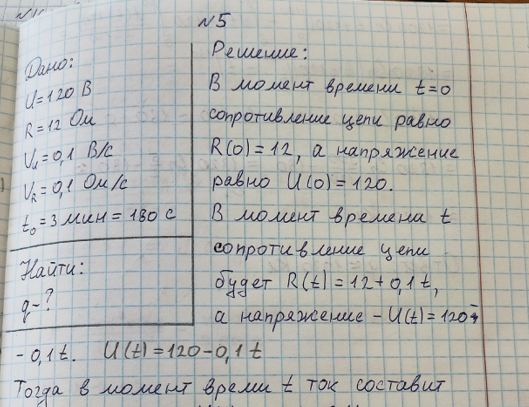 №5
Дано:
U=120 В
R=12 Ом
V_U=0,1 В/с
V_R=0,1 Ом/с
t₀=3 мин=180 с
Найти:
q-?
Решение:
В момент времени t=0
сопротивление цепи равно
R(0)=12, а напряжение
равно U(0)=120.
В момент времени t
сопротивление цепи
будет R(t)=12+0,1t,
а напряжение - U(t)=120-
-0,1t. U(t)=120-0,1t
Тогда в момент время t ток составит